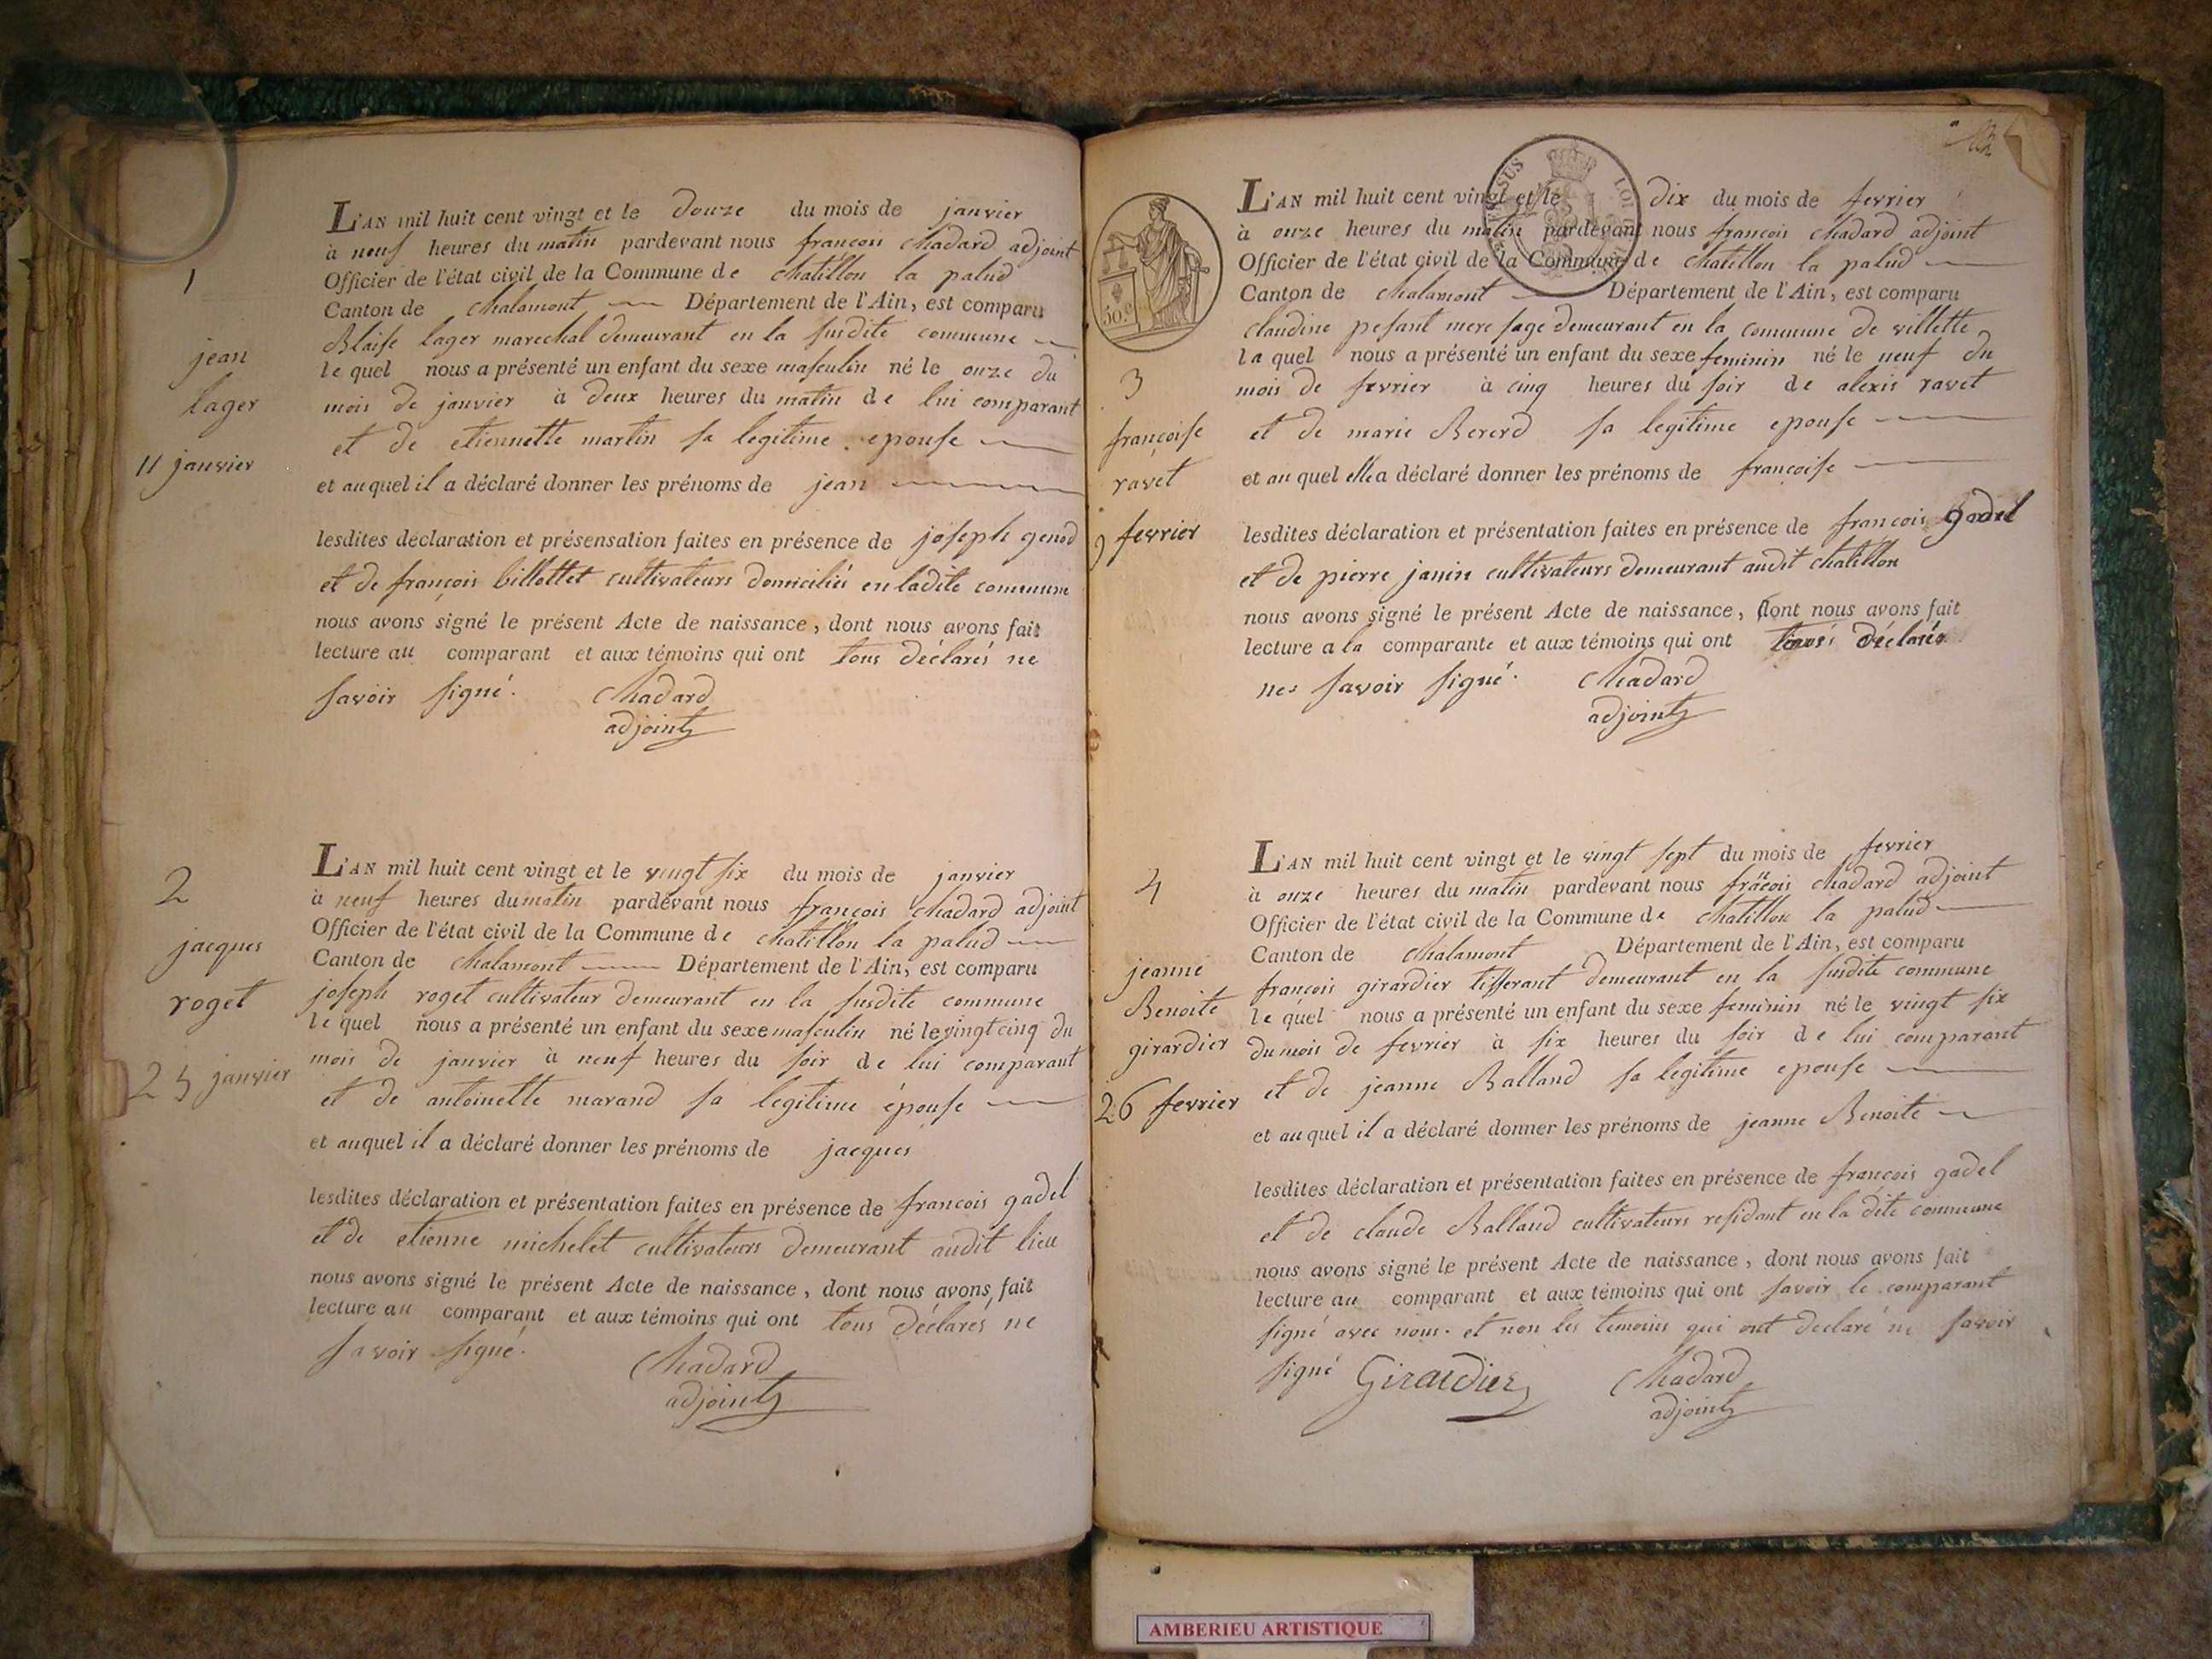 1
jean
lager
11 janvier
L'AN mil huit cent vingt et le douze du mois de janvier
à neuf heures du matin pardevant nous françois chadard adjoint
Officier de l'état civil de la Commune de chatillon la palud
Canton de chalamont Département de l'Ain, est comparu
Blaise lager marechal demeurant en la susdite commune
le quel nous a présenté un enfant du sexe masculin né le onze du
mois de janvier à deux heures du matin de lui comparant
et de etiennette martin sa legitime epouse
et auquel il a déclaré donner les prénoms de jean
lesdites déclaration et présensation faites en présence de joseph genod
et de françois billottet cultivateurs domiciliés en ladite commune
nous avons signé le présent Acte de naissance, dont nous avons fait
lecture au comparant et aux témoins qui ont tous déclarés ne
savoir signé. Chadard
adjoint
2
jacques
roget
25 janvier
L'AN mil huit cent vingt et le vingt six du mois de janvier
à neuf heures du matin pardevant nous françois chadard adjoint
Officier de l'état civil de la Commune de chatillon la palud
Canton de chalamont Département de l'Ain, est comparu
joseph roget cultivateur demeurant en la susdite commune
le quel nous a présenté un enfant du sexe masculin né le vingt cinq du
mois de janvier à neuf heures du soir de lui comparant
et de antoinette marand sa legitime épouse
et auquel il a déclaré donner les prénoms de jacques
lesdites déclaration et présentation faites en présence de francois gadel
et de etienne michelet cultivateurs demeurant audit lieu
nous avons signé le présent Acte de naissance, dont nous avons fait
lecture au comparant et aux témoins qui ont tous déclarés ne
savoir signé. Chadard
adjoint
50.c
3
françoise
ravet
9 fevrier
L'AN mil huit cent vingt et le dix du mois de fevrier
à onze heures du matin pardevant nous françois chadard adjoint
Officier de l'état civil de la Commune de chatillon la palud
Canton de chalamont Département de l'Ain, est comparu
claudine pesant mere sage demeurant en la commune de villette
la quel nous a présenté un enfant du sexe feminin né le neuf du
mois de fevrier à cinq heures du soir de alexis ravet
et de marie Bererd sa legitime epouse
et au quel elle a déclaré donner les prénoms de françoise
lesdites déclaration et présentation faites en présence de francois gadel
et de pierre janin cultivateurs demeurant audit chatillon
nous avons signé le présent Acte de naissance, dont nous avons fait
lecture a la comparante et aux témoins qui ont tous déclarés
ne savoir signé. Chadard
adjoint
4
jeanne
Benoite
girardier
26 fevrier
L'AN mil huit cent vingt et le vingt sept du mois de fevrier
à onze heures du matin pardevant nous françois chadard adjoint
Officier de l'état civil de la Commune de chatillon la palud
Canton de chalamont Département de l'Ain, est comparu
françois girardier tisserant demeurant en la susdite commune
le quel nous a présenté un enfant du sexe feminin né le vingt six
du mois de fevrier à six heures du soir de lui comparant
et de jeanne Balland sa legitime epouse
et au quel il a déclaré donner les prénoms de jeanne Benoite
lesdites déclaration et présentation faites en présence de francois gadel
et de claude Balland cultivateurs residant en la dite commune
nous avons signé le présent Acte de naissance, dont nous avons fait
lecture au comparant et aux témoins qui ont savoir le comparant
signé avec nous. et non les temoins qui ont declaré ne savoir
signé Girardier Chadard
adjoint
AMBERIEU ARTISTIQUE